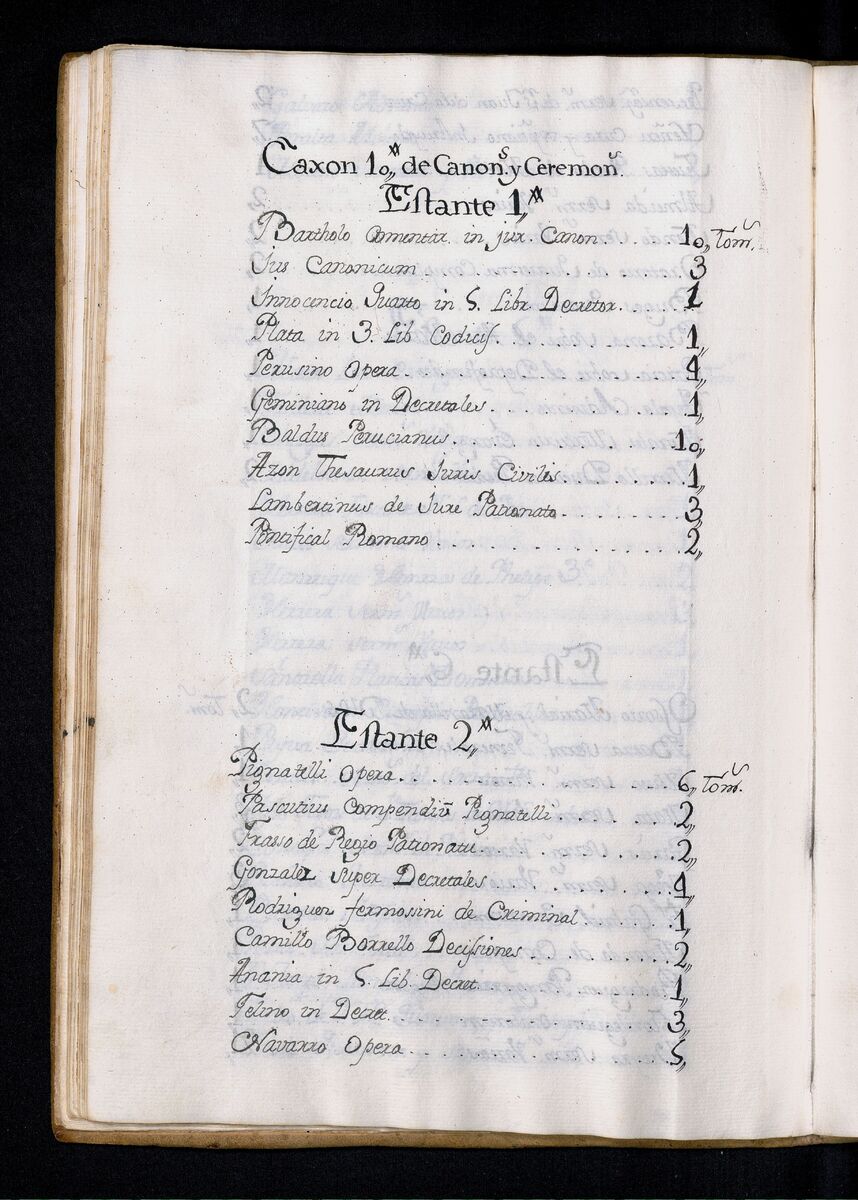 Caxon 10,, de Canon.s y Ceremon.s
Estante 1,,
Bartholo Comentar. in jur. Canon. 10,, Tom.s
Jus Canonicum . . . . . . . . 3
Innocencio Quarto in 5. Libr. Decretor. . . . 1
Plata in 3. Lib Codicis . . . . . . . 1,,
Perusino Opera . . . . . . . . 4,,
Geminiano in Decretales . . . . . . . 1,,
Baldus Perucianus . . . . . . . . 10,,
Azon Thesaurus Juris Civilis . . . . . 1,,
Lambertinus de Jure Patronato . . . . . . 3,,
Pontifical Romano . . . . . . . . 2,,
Estante 2,,
Pignatelli Opera . . . . . . . . 6,, Tom.s
Pascutius Compendiũ Pignatelli . . . . 2,,
Frasso de Regio Patronatu . . . . . 2,,
Gonzalez super Decretales . . . . . . 4,,
Rodriguez fermosini de Criminal . . . . 1,,
Camillo Borrello Decissiones . . . . . 2,,
Anania in 5. Lib. Decret. . . . . . . 1,,
Felino in Decret. . . . . . . . 3,,
Navarro Opera . . . . . . . . 5,,